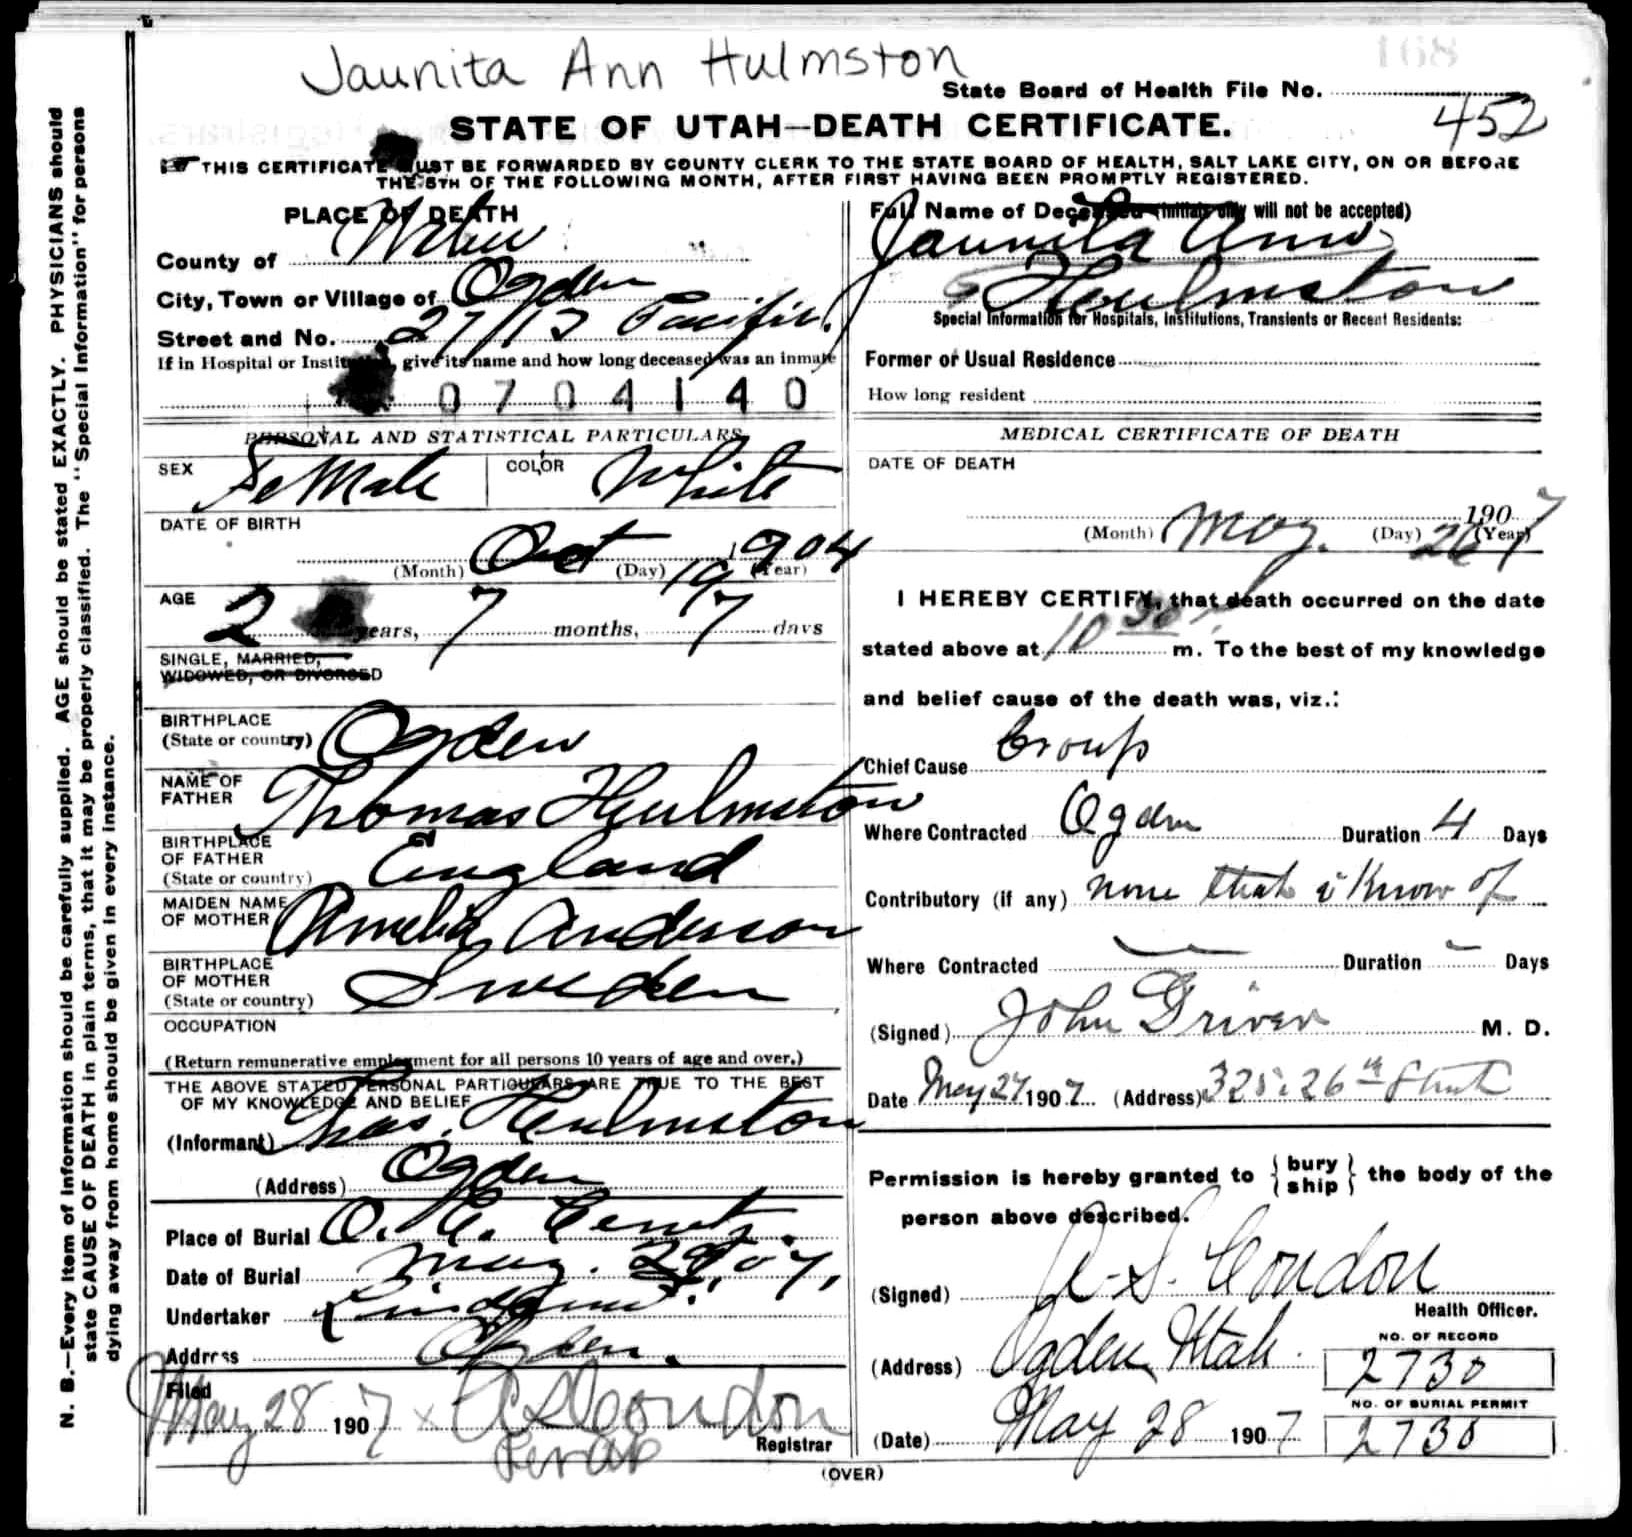 Jaunita Ann Hulmston
State Board of Health File No. 452
STATE OF UTAH—DEATH CERTIFICATE.
THIS CERTIFICATE MUST BE FORWARDED BY COUNTY CLERK TO THE STATE BOARD OF HEALTH, SALT LAKE CITY, ON OR BEFORE
THE 5TH OF THE FOLLOWING MONTH, AFTER FIRST HAVING BEEN PROMPTLY REGISTERED.
N. B.—Every item of information should be carefully supplied. AGE should be stated EXACTLY. PHYSICIANS should
state CAUSE OF DEATH in plain terms, that it may be properly classified. The "Special Information" for persons
dying away from home should be given in every instance.
PLACE OF DEATH
County of Weber
City, Town or Village of Ogden
Street and No. Pacific
If in Hospital or Institution, give its name and how long deceased was an inmate
0704140
PERSONAL AND STATISTICAL PARTICULARS
SEX Female COLOR White
DATE OF BIRTH
(Month) Oct (Day) 19 (Year) 1904
AGE
2 years, 7 months, 7 days
SINGLE, MARRIED,
WIDOWED, OR DIVORCED
BIRTHPLACE
(State or country) Ogden
NAME OF
FATHER Thomas Hulmston
BIRTHPLACE
OF FATHER
(State or country) England
MAIDEN NAME
OF MOTHER Amelia Anderson
BIRTHPLACE
OF MOTHER
(State or country) Sweden
OCCUPATION
(Return remunerative employment for all persons 10 years of age and over.)
THE ABOVE STATED PERSONAL PARTICULARS ARE TRUE TO THE BEST
OF MY KNOWLEDGE AND BELIEF
(Informant) Thos. Hulmston
(Address) Ogden
Place of Burial O. C. Cemt.
Date of Burial May. 28 07,
Undertaker Lindquist
Address Ogden.
Filed
May 28 1907 x R S Condon
Registrar
Full Name of Deceased (Initials only will not be accepted)
Jaunita Ann
Hulmston
Special Information for Hospitals, Institutions, Transients or Recent Residents:
Former or Usual Residence
How long resident
MEDICAL CERTIFICATE OF DEATH
DATE OF DEATH
(Month) May. (Day) 26 1907 (Year)
I HEREBY CERTIFY, that death occurred on the date
stated above at 10 30 m. To the best of my knowledge
and belief cause of the death was, viz.:
Chief Cause Croup
Where Contracted Ogden Duration 4 Days
Contributory (if any) none that i Know of
Where Contracted — Duration — Days
(Signed) John Driver M. D.
Date May 27 1907 (Address) 325. 26th Street
Permission is hereby granted to { bury
ship } the body of the
person above described.
(Signed) R. S. Condon
Health Officer.
(Address) Ogden Utah.
NO. OF RECORD
2730
NO. OF BURIAL PERMIT
2730
(Date) May 28 1907
(OVER)